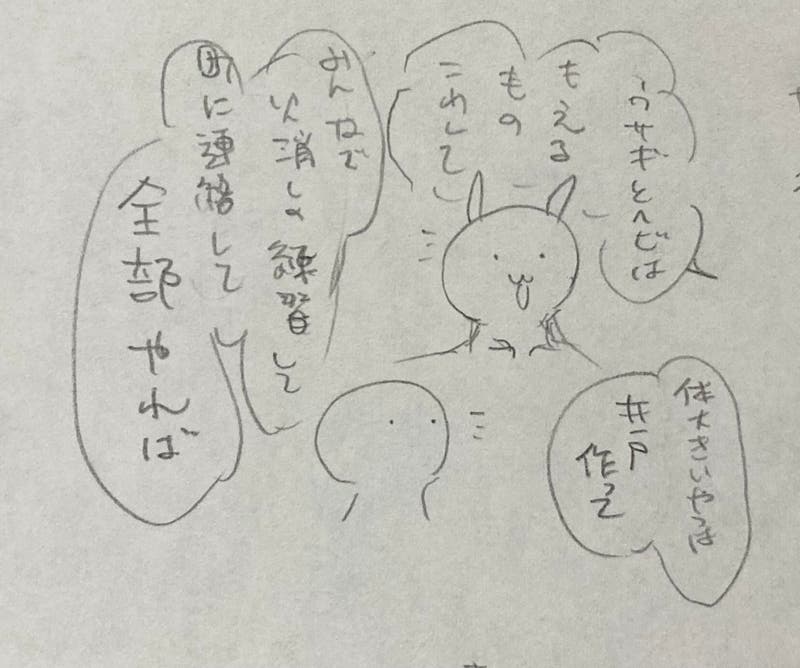 ウサギとヘビは
もえる
もの
こわして
体大きいやつは
井戸
作って
みんなで
火消しの練習して
町に連絡して
全部やれば